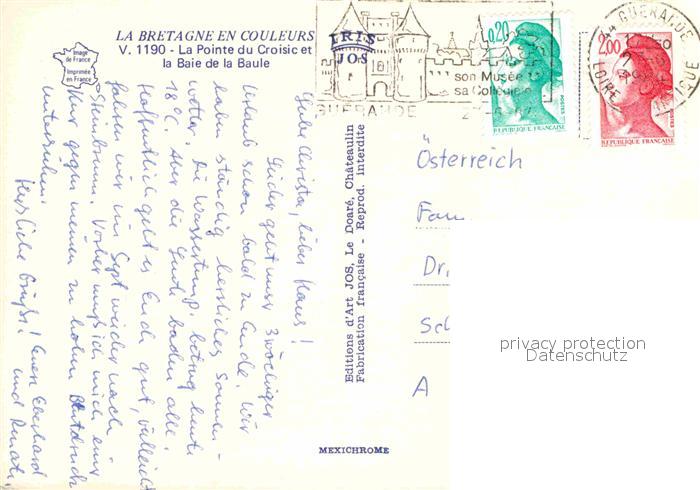 LA BRETAGNE EN COULEURS
V. 1190 - La Pointe du Croisic et
la Baie de la Baule
Image
de France
Imprimée
en France
IRIS
JOS
son Musée
sa Collégiale
GUERANDE
0,20
POSTES
REPUBLIQUE FRANÇAISE
2,00
POSTES
REPUBLIQUE FRANÇAISE
44 GUERANDE
LOIRE
Liebe Christa, lieber Hans!
Leider geht unser 3wöchiger
Urlaub schon bald zu Ende. Wir
haben ständig herrliches Sonnen-
wetter. Die Wassertemp. beträgt heute
18°C. Aber die Leute baden alle.
Hoffentlich geht es Euch gut, vielleicht
fahren wir im Sept wieder nach
Vorher muß ich mich einer
Kur gegen meinen zu hohen Blutdruck
unterziehen.
Herzliche Grüße! Euere Eberhard
und Renate
Editions d'Art JOS, Le Doaré, Châteaulin
Fabrication française - Reprod. Interdite
MEXICHROME
Österreich
Fam
Dr.
Sch
A
privacy protection
Datenschutz